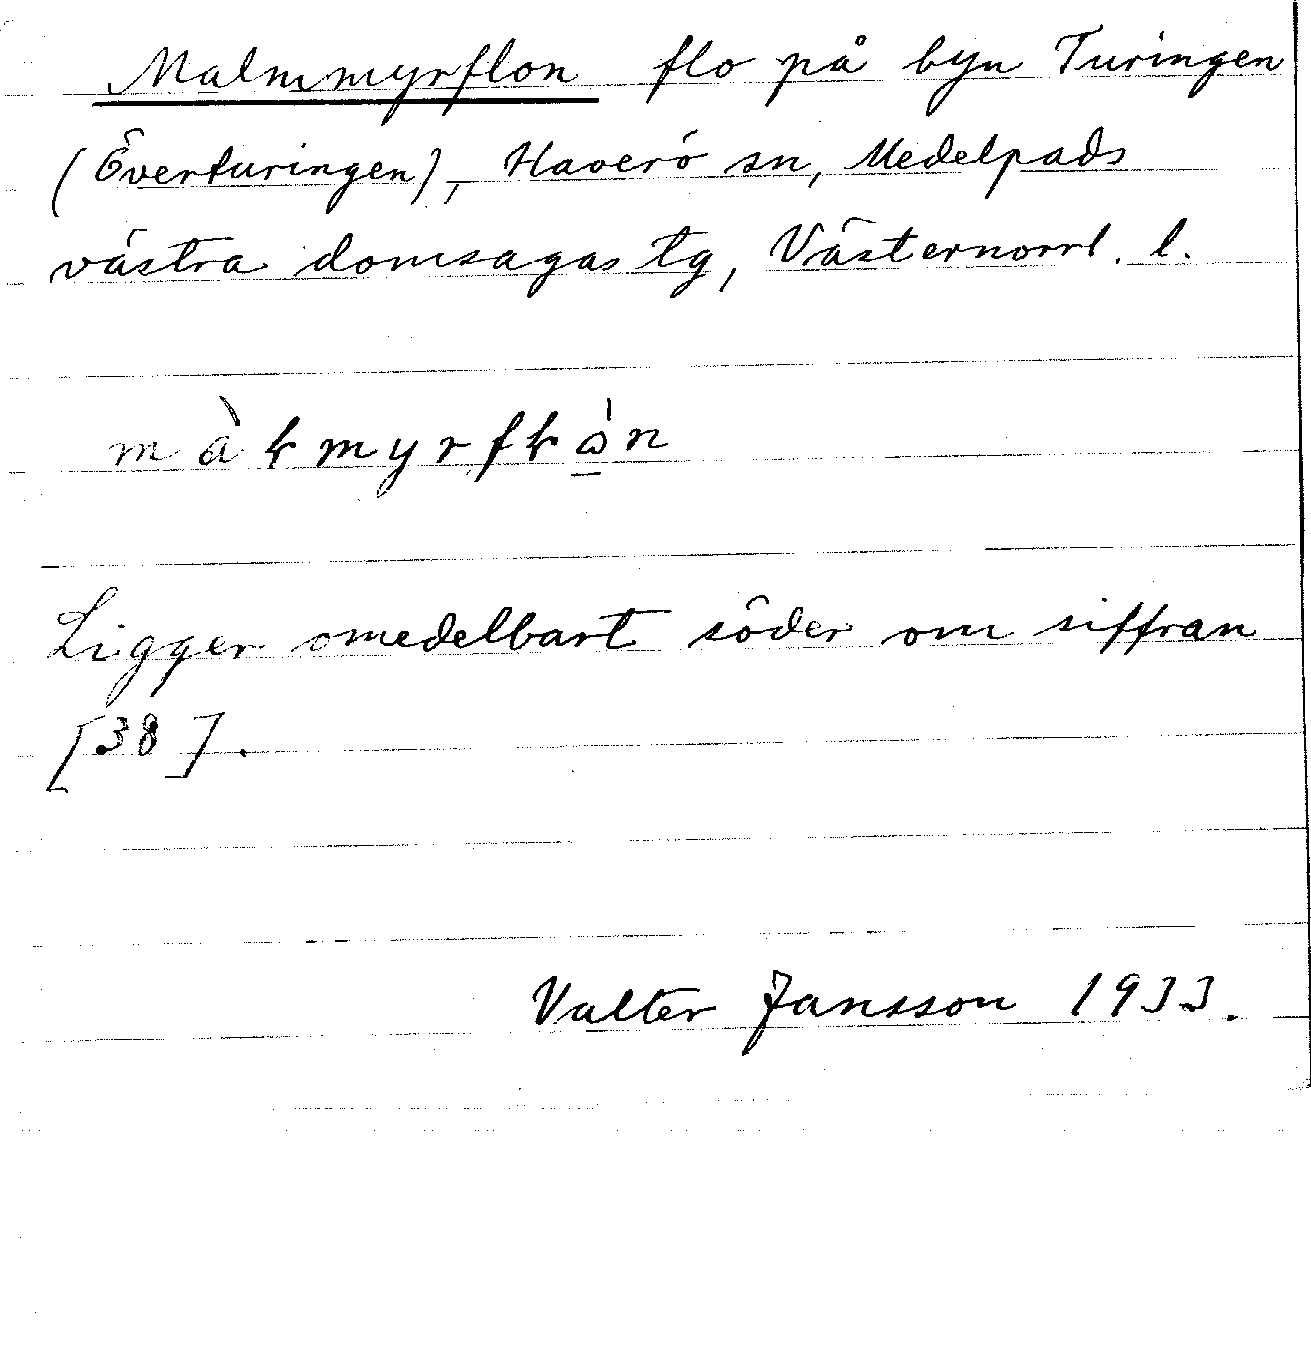 Malmmyrflon flo på byn Turingen
(Överturingen), Haverö sn, Medelpads
västra domsagas tg, Västernorrl. l.
Ligger omedelbart söder om siffran
[38].
Valter Jansson 1933.